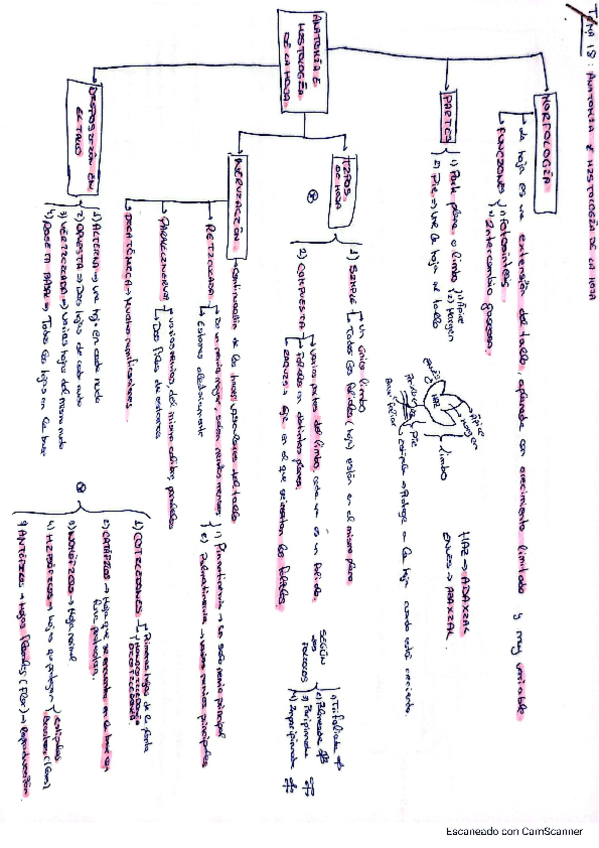 TEMA 15: ANATOMÍA E HISTOLOGÍA DE LA HOJA
ANATOMÍA E
HISTOLOGÍA
DE LA HOJA
MORFOLOGÍA
La hoja es una extensión del tallo, aplanada con crecimiento limitado y muy variable
FUNCIONES
Fotosíntesis
Intercambio gaseoso.
PARTES
1) Parte plana o limbo
1) Ápice
2) Margen
2) Pie → Une la hoja al tallo
Ápice
Margen
limbo
HAZ
Envés
Pie
estípula → Protege a la hoja cuando está creciendo.
HAZ → ADAXIAL
ENVÉS → ABAXIAL
TIPOS
DE HOJA
1) SIMPLE
Un único limbo
Todos los foliolos (hoja) están en el mismo plano
2) COMPUESTA
Varias partes del limbo, cada una es un foliolo.
Foliolos en distintos planos.
RAQUIS → Eje en el que se insertan los foliolos.
SEGÚN
LOS
FOLIOLOS
1) Trifoliada
2) Palmeada
3) Paripinnada
4) Imparipinnada
NERVIACIÓN → Continuación de los haces vasculares del tallo
RETICULADA
De un nervio mayor, salen nervios menores
1) Pinnatinervia → Un solo nervio principal
2) Palmatinervia → varios nervios principales
PARALELINERVIA
varios nervios, del mismo calibre, paralelos
DICOTÓMICA → Muchas ramificaciones
DISPOSICIÓN EN
EL TALLO
1) ALTERNA → una hoja en cada nudo
2) OPUESTA → Dos hojas de cada nudo
3) VERTICILADA → varias hojas del mismo nudo
4) ROSETA BASAL → Todas las hojas en la base
1) COTILEDONES
Primeras hojas de la planta
MONOCOTILEDONEA
DICOTILEDONEA.
2) CATÁFILOS → Hoja que se encuentra en la base con
func. protectora.
3) NOMÓFILOS → Hoja normal
4) HIPSÓFILOS → hojas que protegen
estípulas
Brácteas (flores)
5) ANTÓFILOS → Hojas florales (Flor) → Reproducción.
Escaneado con CamScanner